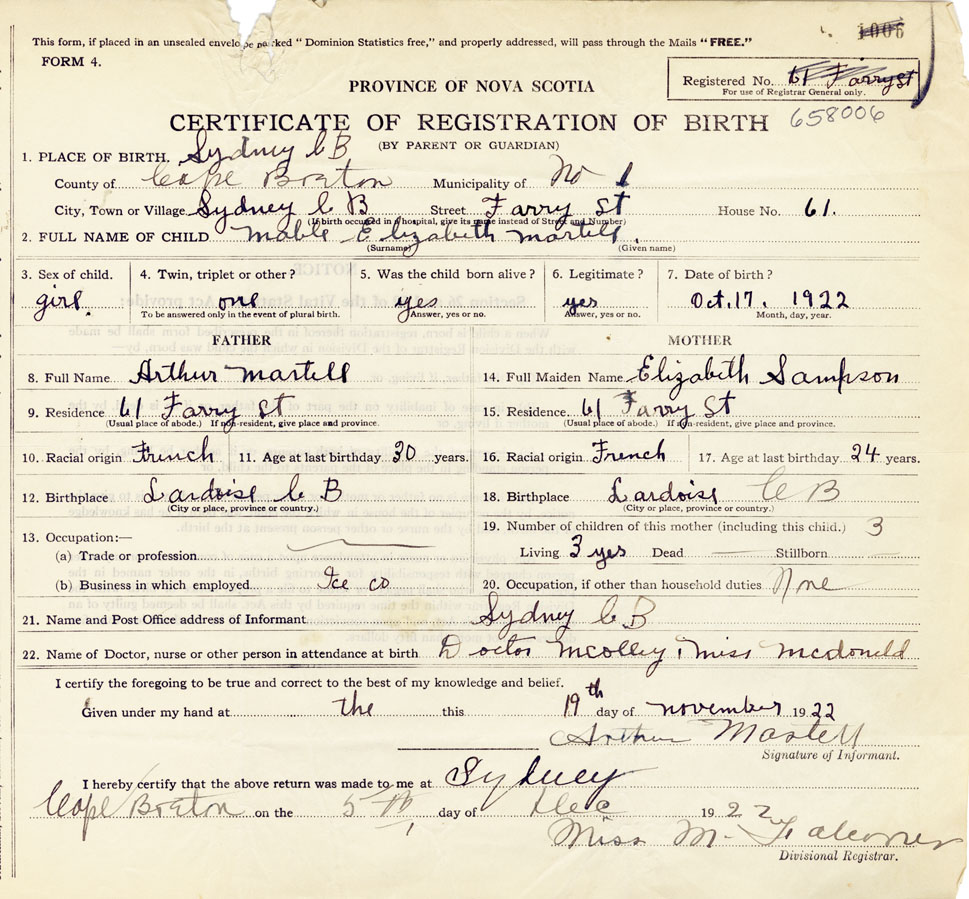 1006
This form, if placed in an unsealed envelope marked "Dominion Statistics free," and properly addressed, will pass through the Mails "FREE."
FORM 4.
PROVINCE OF NOVA SCOTIA
Registered No. 61 Farry st
For use of Registrar General only.
CERTIFICATE OF REGISTRATION OF BIRTH 658006
(BY PARENT OR GUARDIAN)
1. PLACE OF BIRTH. Sydney C B
County of Cape Breton Municipality of No 1
City, Town or Village Sydney C B Street Farry St House No. 61.
(If birth occurred in a hospital, give its name instead of Street and Number)
2. FULL NAME OF CHILD Mable Elizabeth Martell.
(Surname) (Given name)
3. Sex of child. 4. Twin, triplet or other? 5. Was the child born alive? 6. Legitimate? 7. Date of birth?
girl. one yes yes Oct. 17. 1922
To be answered only in the event of plural birth. Answer, yes or no. Answer, yes or no. Month, day, year.
FATHER MOTHER
8. Full Name Arthur Martell 14. Full Maiden Name Elizabeth Sampson
9. Residence 61 Farry St 15. Residence. 61 Farry St
(Usual place of abode.) If non-resident, give place and province. (Usual place of abode.) If non-resident, give place and province.
10. Racial origin French 11. Age at last birthday 30 years. 16. Racial origin French 17. Age at last birthday 24 years.
12. Birthplace Lardoise C B 18. Birthplace Lardoise C B
(City or place, province or country.) (City or place, province or country.)
19. Number of children of this mother (including this child.) 3
13. Occupation:—
(a) Trade or profession Living 3 yes Dead — Stillborn —
(b) Business in which employed Ice co 20. Occupation, if other than household duties None
21. Name and Post Office address of Informant Sydney C B
22. Name of Doctor, nurse or other person in attendance at birth Doctor McOlley, Miss Mcdoneld
I certify the foregoing to be true and correct to the best of my knowledge and belief.
Given under my hand at the this 19th day of November 1922
Arthur Martell
Signature of Informant.
I hereby certify that the above return was made to me at Sydney
Cape Breton on the 5th day of Dec 1922
Miss M. Falconer
Divisional Registrar.